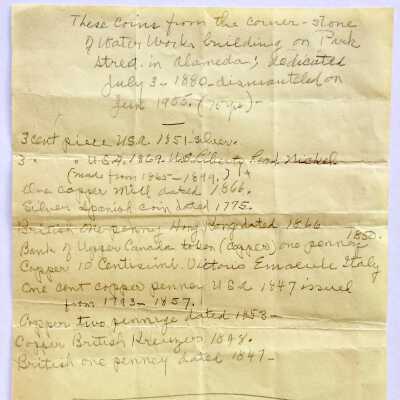 These coins from the corner-stone
of Water Works building on Park
Street in Alameda, dedicated
July 3-1880-dismantled on
Jan 1955. (70 yrs)-
3 cent piece U.S.A 1851-silver.
3 " " U.S.A. 1869. Liberty Head Nickel
(made from 1865-1889.)
One copper Mill dated 1866.
Silver Spanish coin dated 1775.
British one penny Hong Kong dated 1866
Bank of Upper Canada token (copper) one penney 1850.
Copper 10 Centisimi Victorio Emanule Italy
One cent copper penney U.S.A 1847 issued
from 1793-1857.
Copper two pennege dated 1853-
Copper British Kreuzers 1848.
British one penney dated 1847-